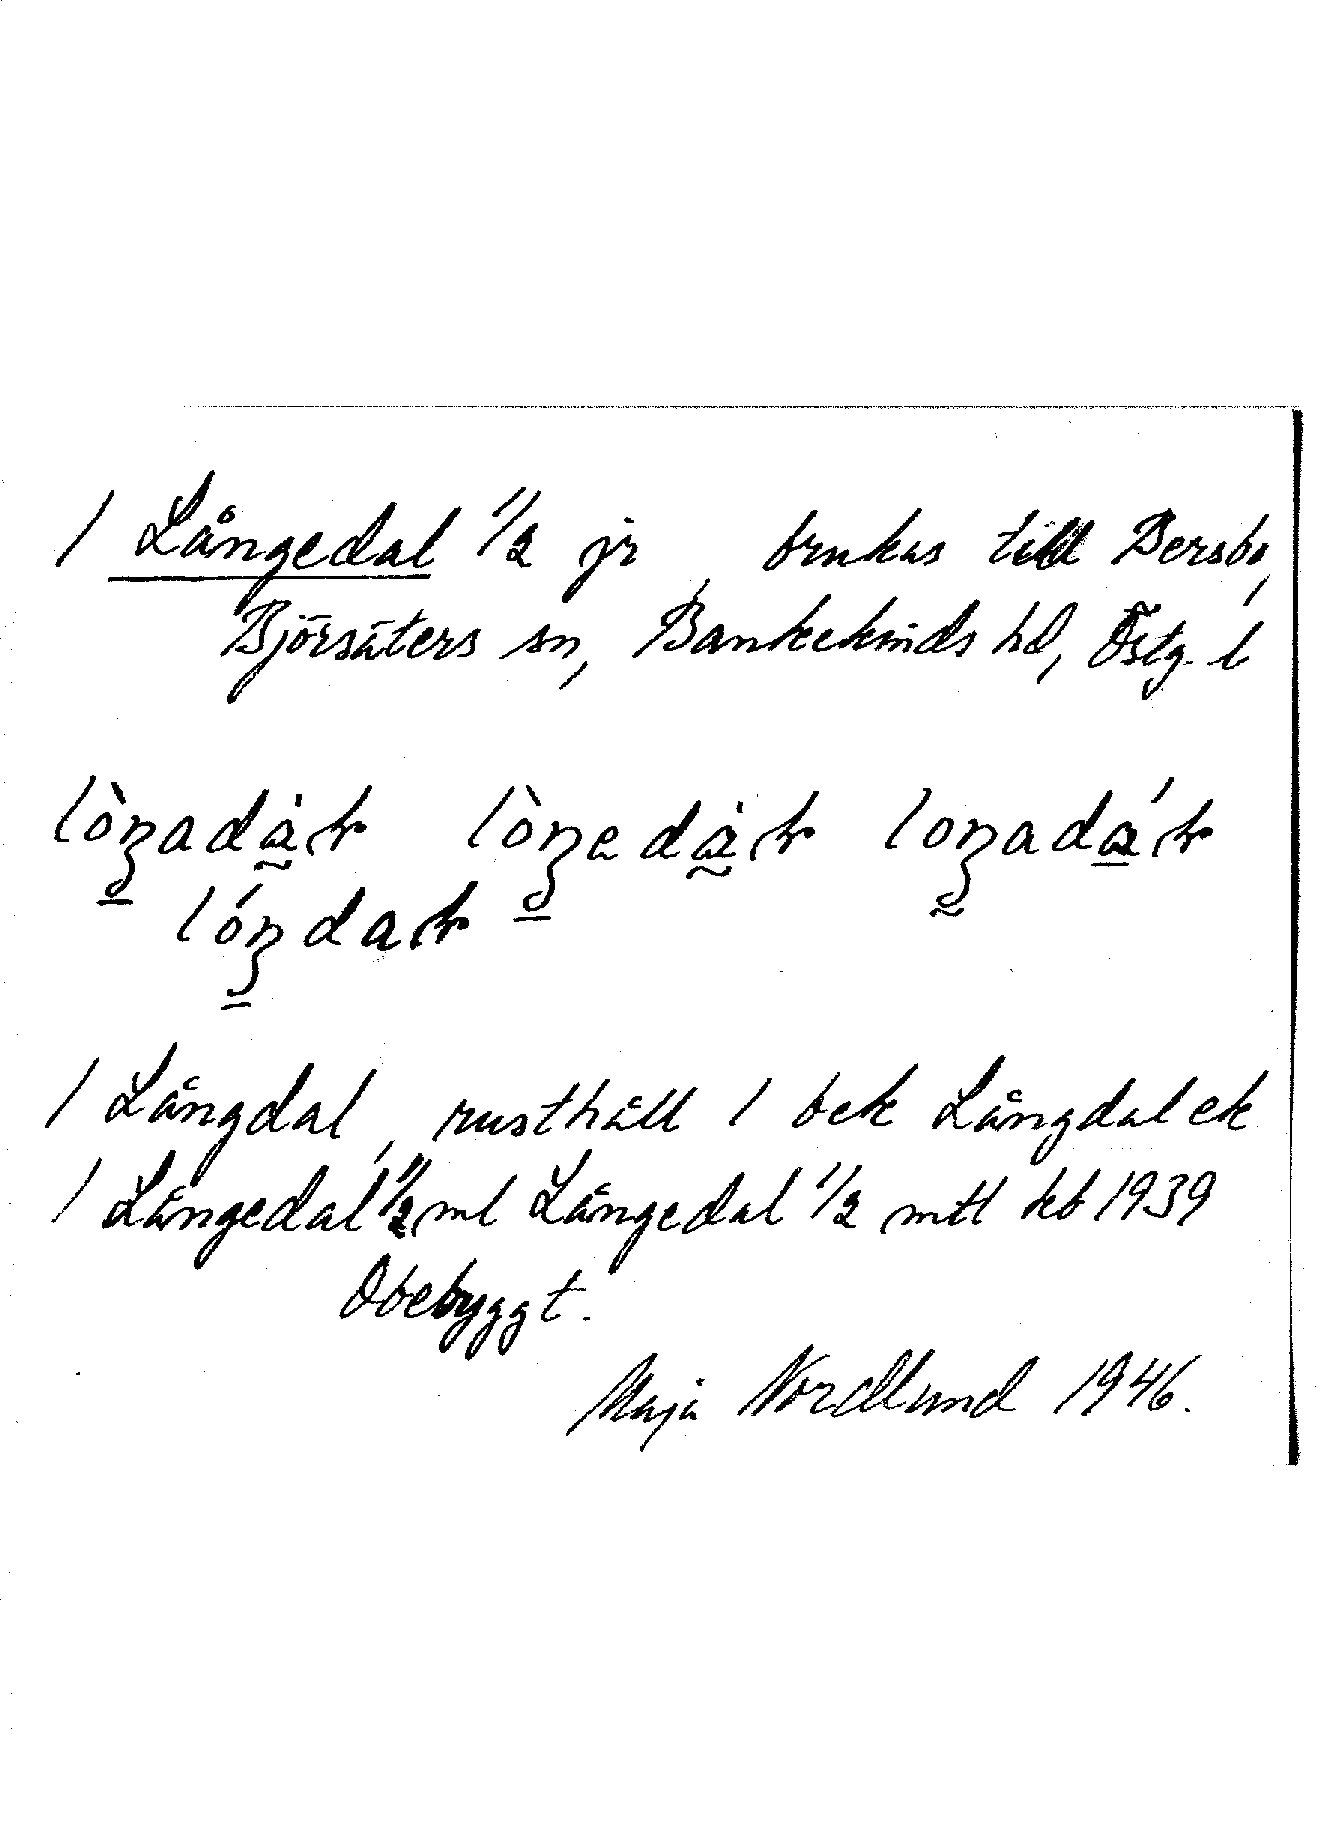 1 Långedal 1/2 jr, brukas till Bersbo,
Björsäters sn, Bankekinds hd, Östg. l
lòŋadàɽ lòŋedàɽ loŋadáɽ
lóŋdaɽ
1 Långdal, rusthåll 1 bek Långdal ek
1 Långedal 1/2 ml Långedal 1/2 mtl kb 1939
Obebyggt.
Maja Nordlund 1946.